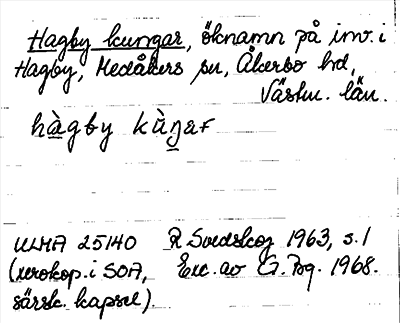 Hagby kungar, öknamn på inv. i
Hagby, Medåkers sn, Åkerbo hd,
Västm. län.
hàgby kùŋar
ULMA 25140 R Svedskog 1963, s. 1
(xerokop. i SOA, Exc. av G. 1968.
särsk. kapsel).